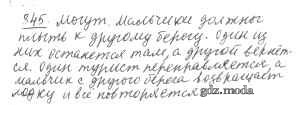 845. Могут. Мальчики должны
плыть к другому берегу. Один из
них останется там, а другой вернёт-
ся. Один турист переправляется, а
мальчик с другого берега возвращает
лодку и всё повторяется.
gdz.moda